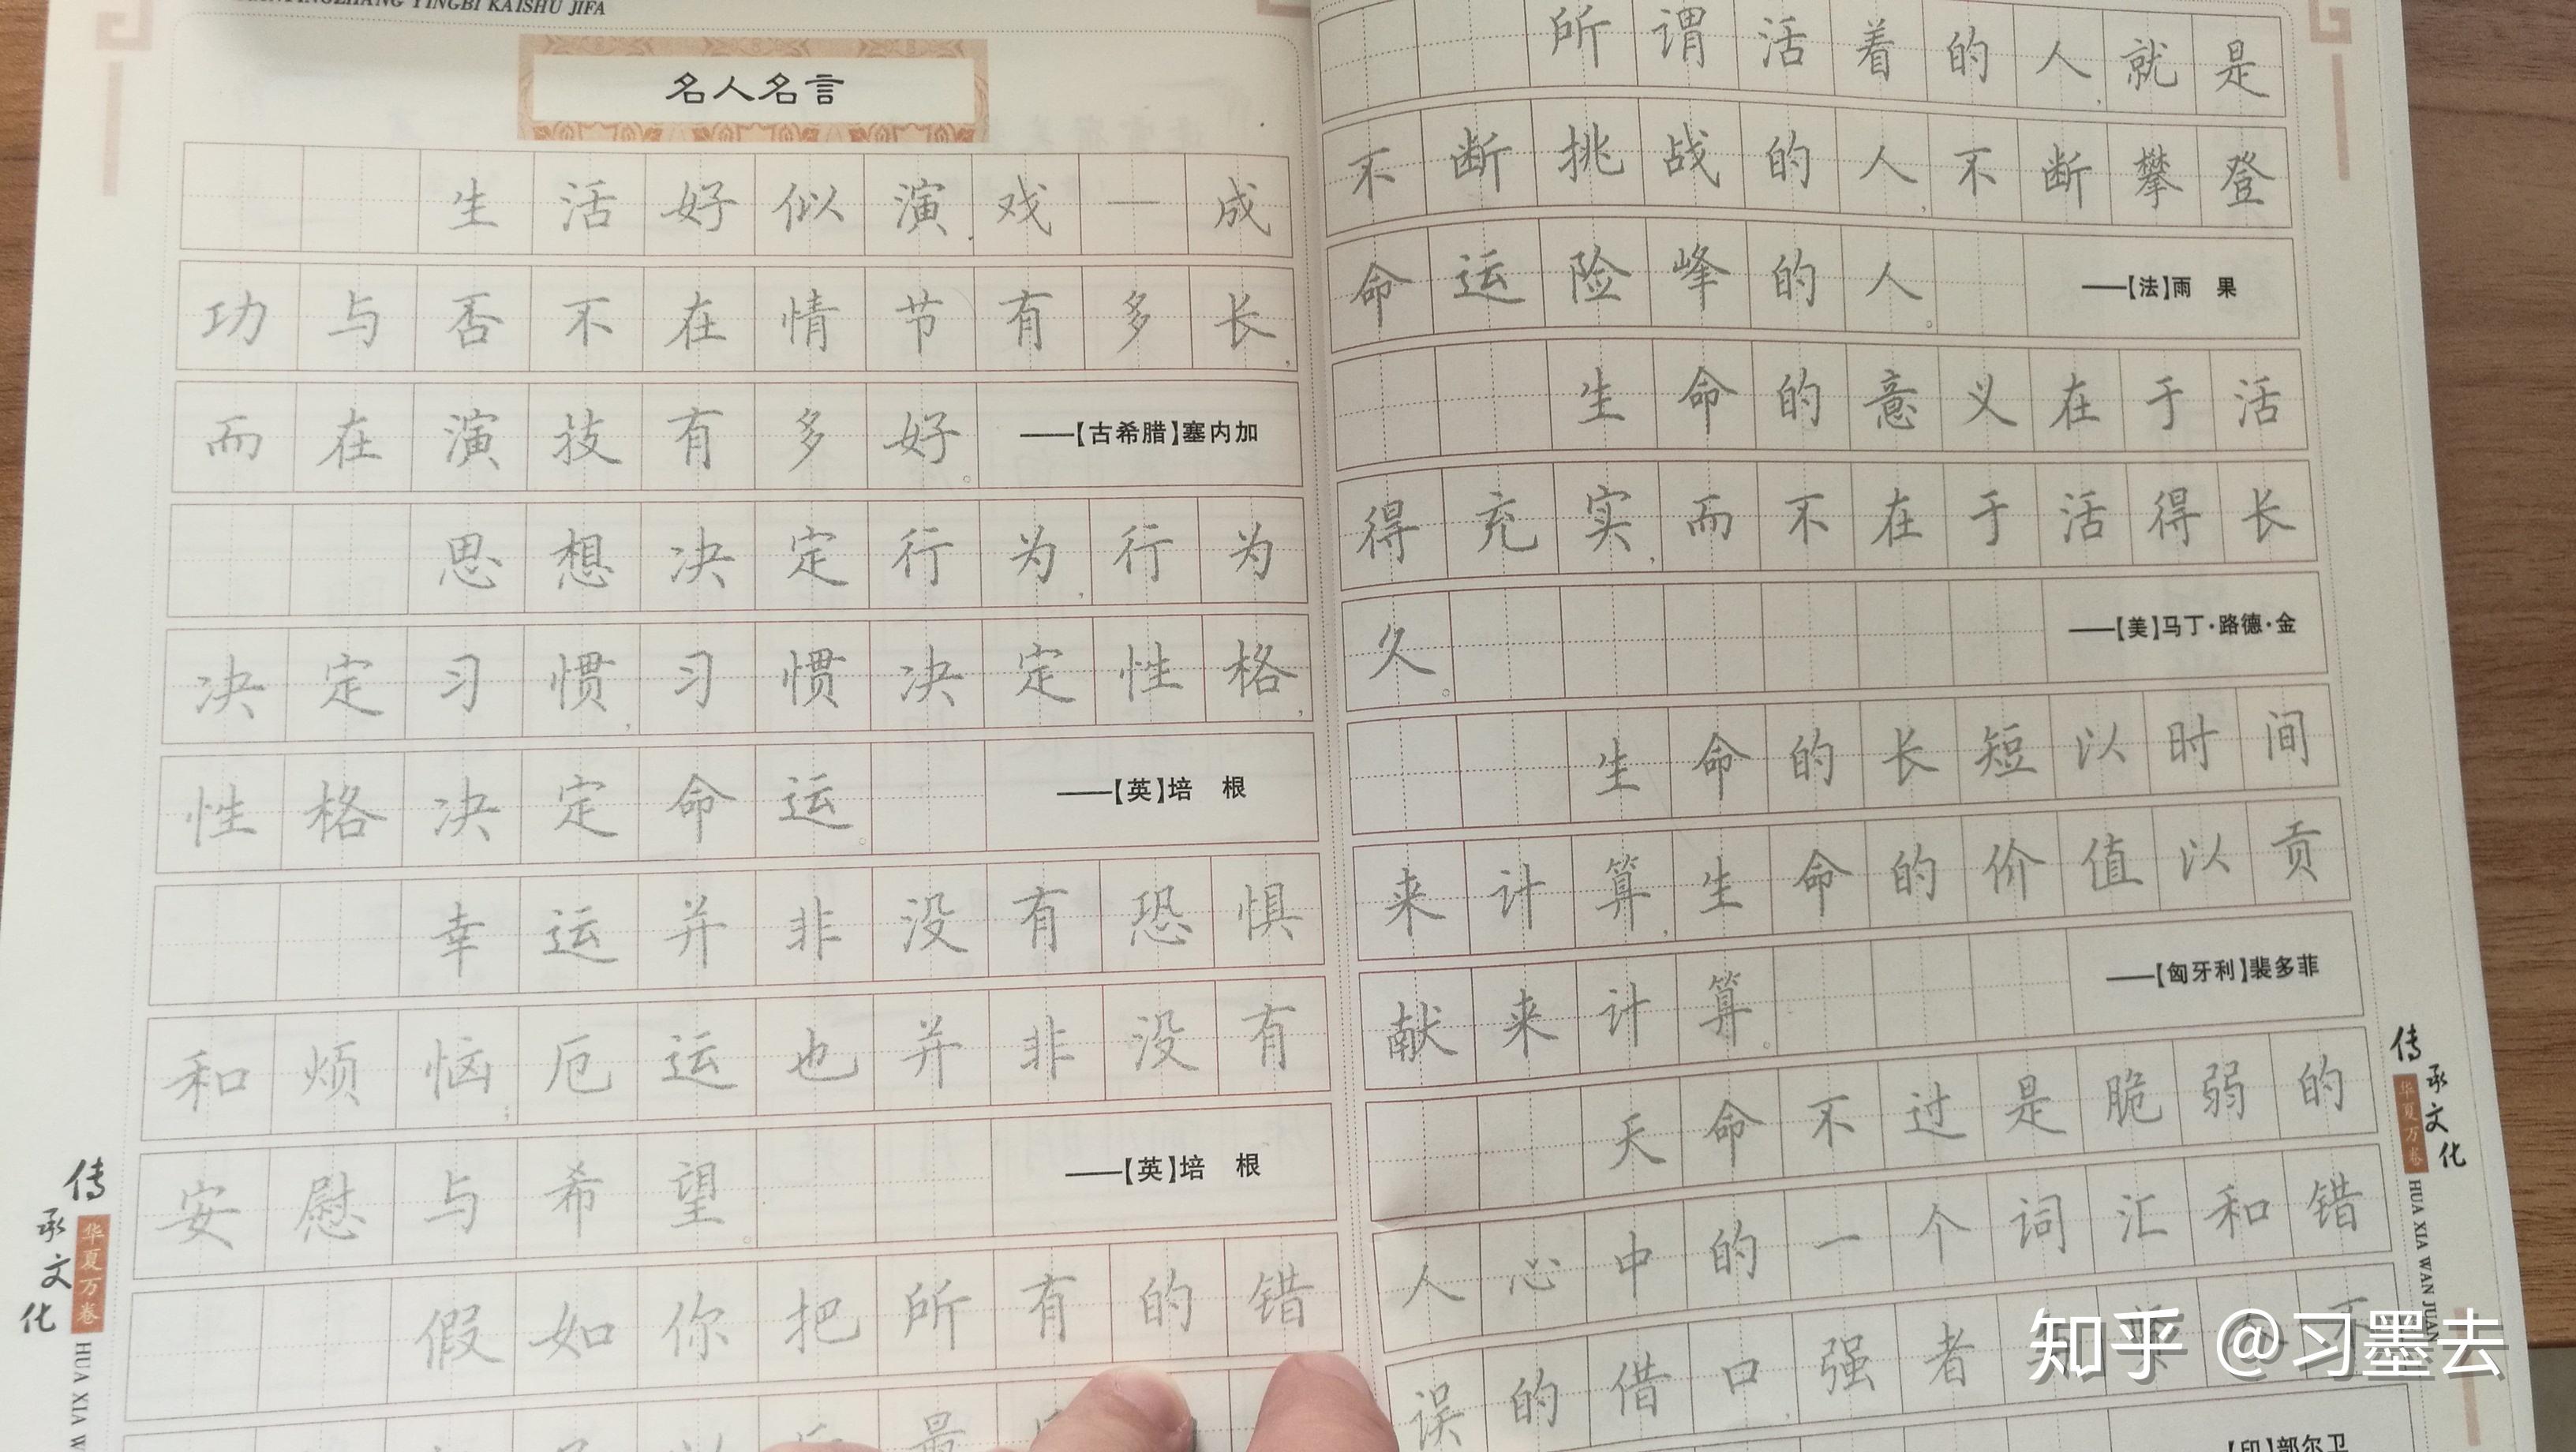 YINGBI KAISHU JIFA
名人名言
生活好似演戏—成
功与否不在情节有多长，
而在演技有多好。——【古希腊】塞内加
思想决定行为，行为
决定习惯，习惯决定性格，
性格决定命运。——【英】培 根
幸运并非没有恐惧
和烦恼；厄运也并非没有
安慰与希望。——【英】培 根
假如你把所有的错
最
传承文化
华夏万卷
HUA XIA W
所谓活着的人，就是
不断挑战的人，不断攀登
命运险峰的人。——【法】雨 果
生命的意义在于活
得充实，而不在于活得长
久。——【美】马丁·路德·金
生命的长短以时间
来计算，生命的价值以贡
献来计算。——【匈牙利】裴多菲
天命不过是脆弱的
人心中的一个词汇和错
误的借口，强者
【印】部尔卫
传承文化
华夏万卷
HUA XIA WAN JUAN
知乎 @习墨去